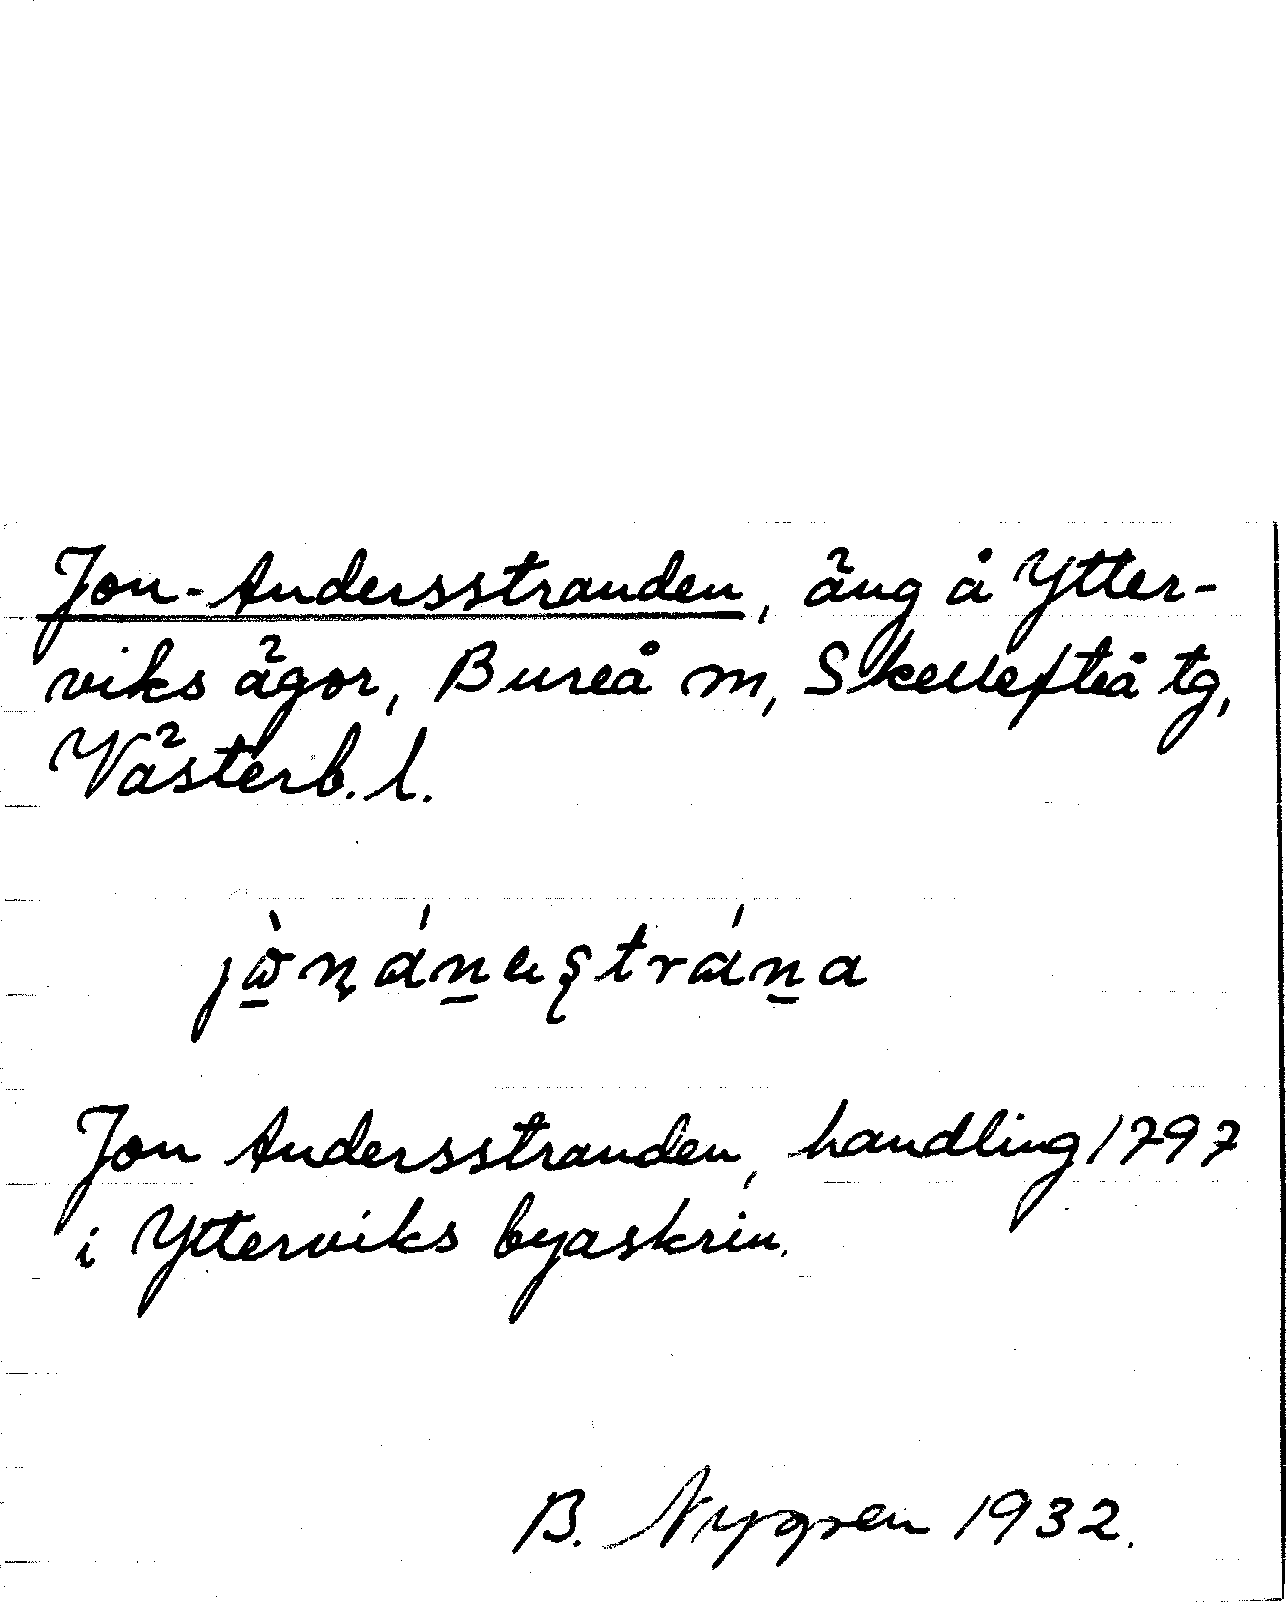 Jon-Andersstranden, äng å Ytter-
viks ägor, Bureå m, Skellefteå tg,
Västerb. l.
Jon Andersstranden, handling 1797
i Ytterviks byaskrin.
B. Nygren 1932.